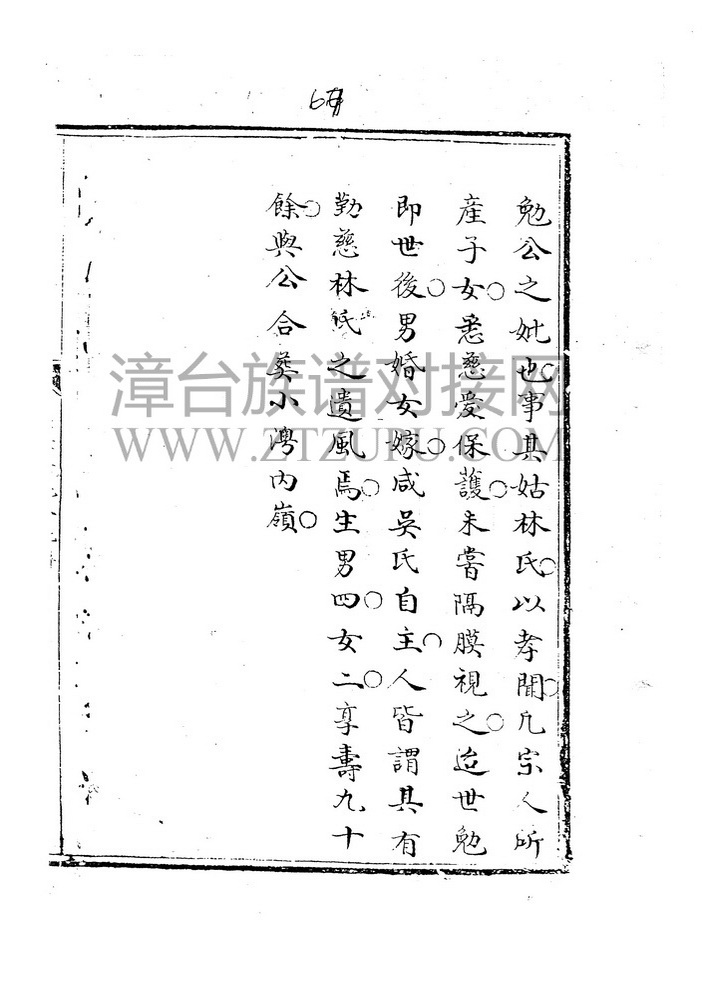 勉公之妣也○事其姑林氏○以孝聞○凡宗人所
産子女○悉慈愛保護○未嘗隔膜視之○迨世勉
即世後○男婚女嫁○咸吳氏自主○人皆謂其有
勤慈林氏之遺風焉○生男四○女二○享壽九十
餘○與公合葬小灣內嶺○
漳台族谱对接网
WWW.ZTZUPU.COM